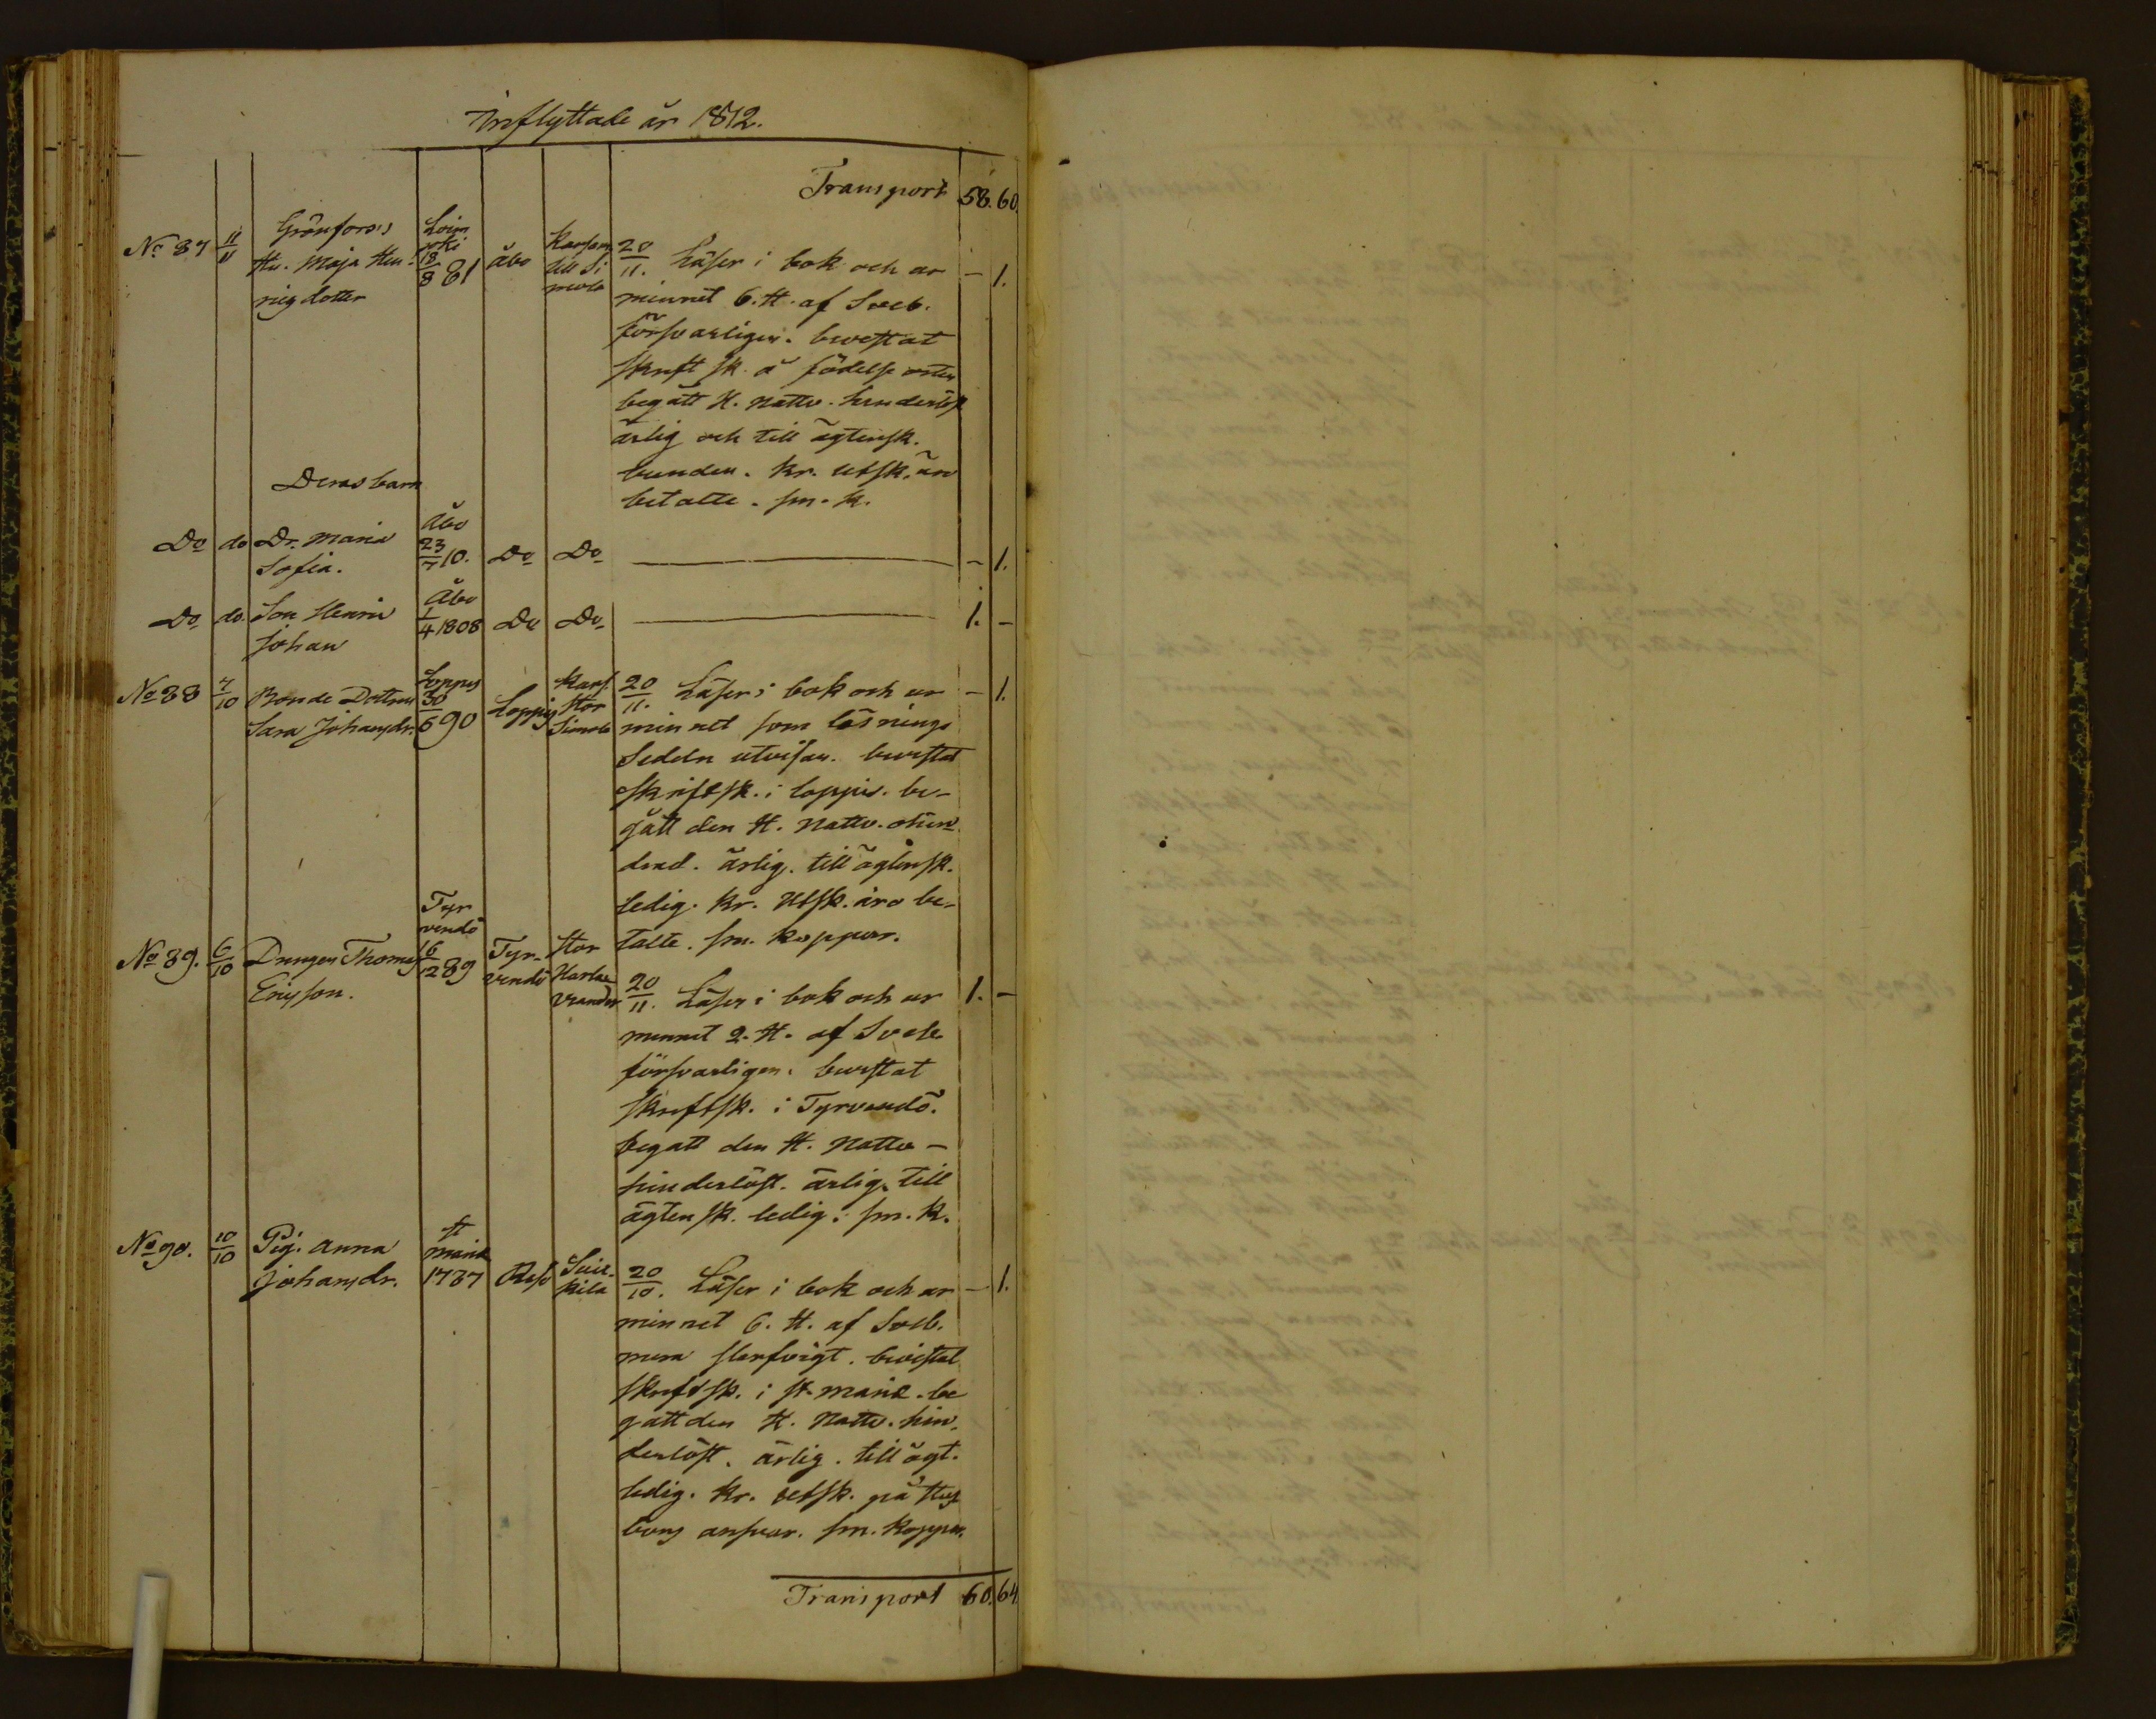 Inflyttade år 1812.
Transport 58. 60.
No 87 11/11 Grönfors's Hu. Maja Hen-
rigdotter Loim
joki
18/8 81 Åbo
till Si
mola
20/11. Läser i bok och ur - 1.
minnet 6. H. af Sveb.
försvarligen. bevistat
skrift sk. å födelse orten
begått H. Nattv. hinderlöst
ärlig och till ägtensk.
bunden. Kr. utsk. än
betalte. sm. K.
Deras barn
Do do Dr. Maria
Sofia. Åbo
23/7 10. Do Do - 1.
Do do. Son Henric
Johan Åbo
1/4 1808 Do Do 1. -
No 88 7/10 Bonde Dottren
Sara Johansdr. Loppis
30/6 90 Loppis Stor
Simola
20/11. Läser i bok och ur - 1.
minnet som läsnings
Sedeln utvisar. bevistat
skriftsk. i loppis. be-
gått den H. Nattv. ohin-
drad. ärlig. till ägtensk.
ledig. Kr. Utsk. äro be-
talte. sm. Koppar.
No 89. 6/10 Drengen Thomas
Ericsson. Tyr
vendö
16/12 89 Tyr-
vendö Stor
20/11. Läser i bok och ur 1. -
minnet 2. H. af Sveb.
försvarligen. bevistat
skriftsk. i Tyrvendö.
begått den H. Nattv -
hinderlöst. ärlig. till
ägtensk. ledig. sm. K.
No 90. 10/10 Pig. Anna
Johansdr. St
Mariæ
1787 Reso Suik-
kila
20/10. Läser i bok och ur - 1.
minnet 6. H. af Sveb.
mera slarfvigt. bevistat
skriftsk. i St. Mariæ. be
gått den H. Nattv. hin-
derlöst. ärlig. till ägt.
ledig. Kr. utsk. på Hus
bons ansvar. sm. Koppar.
Transport 60. 64.